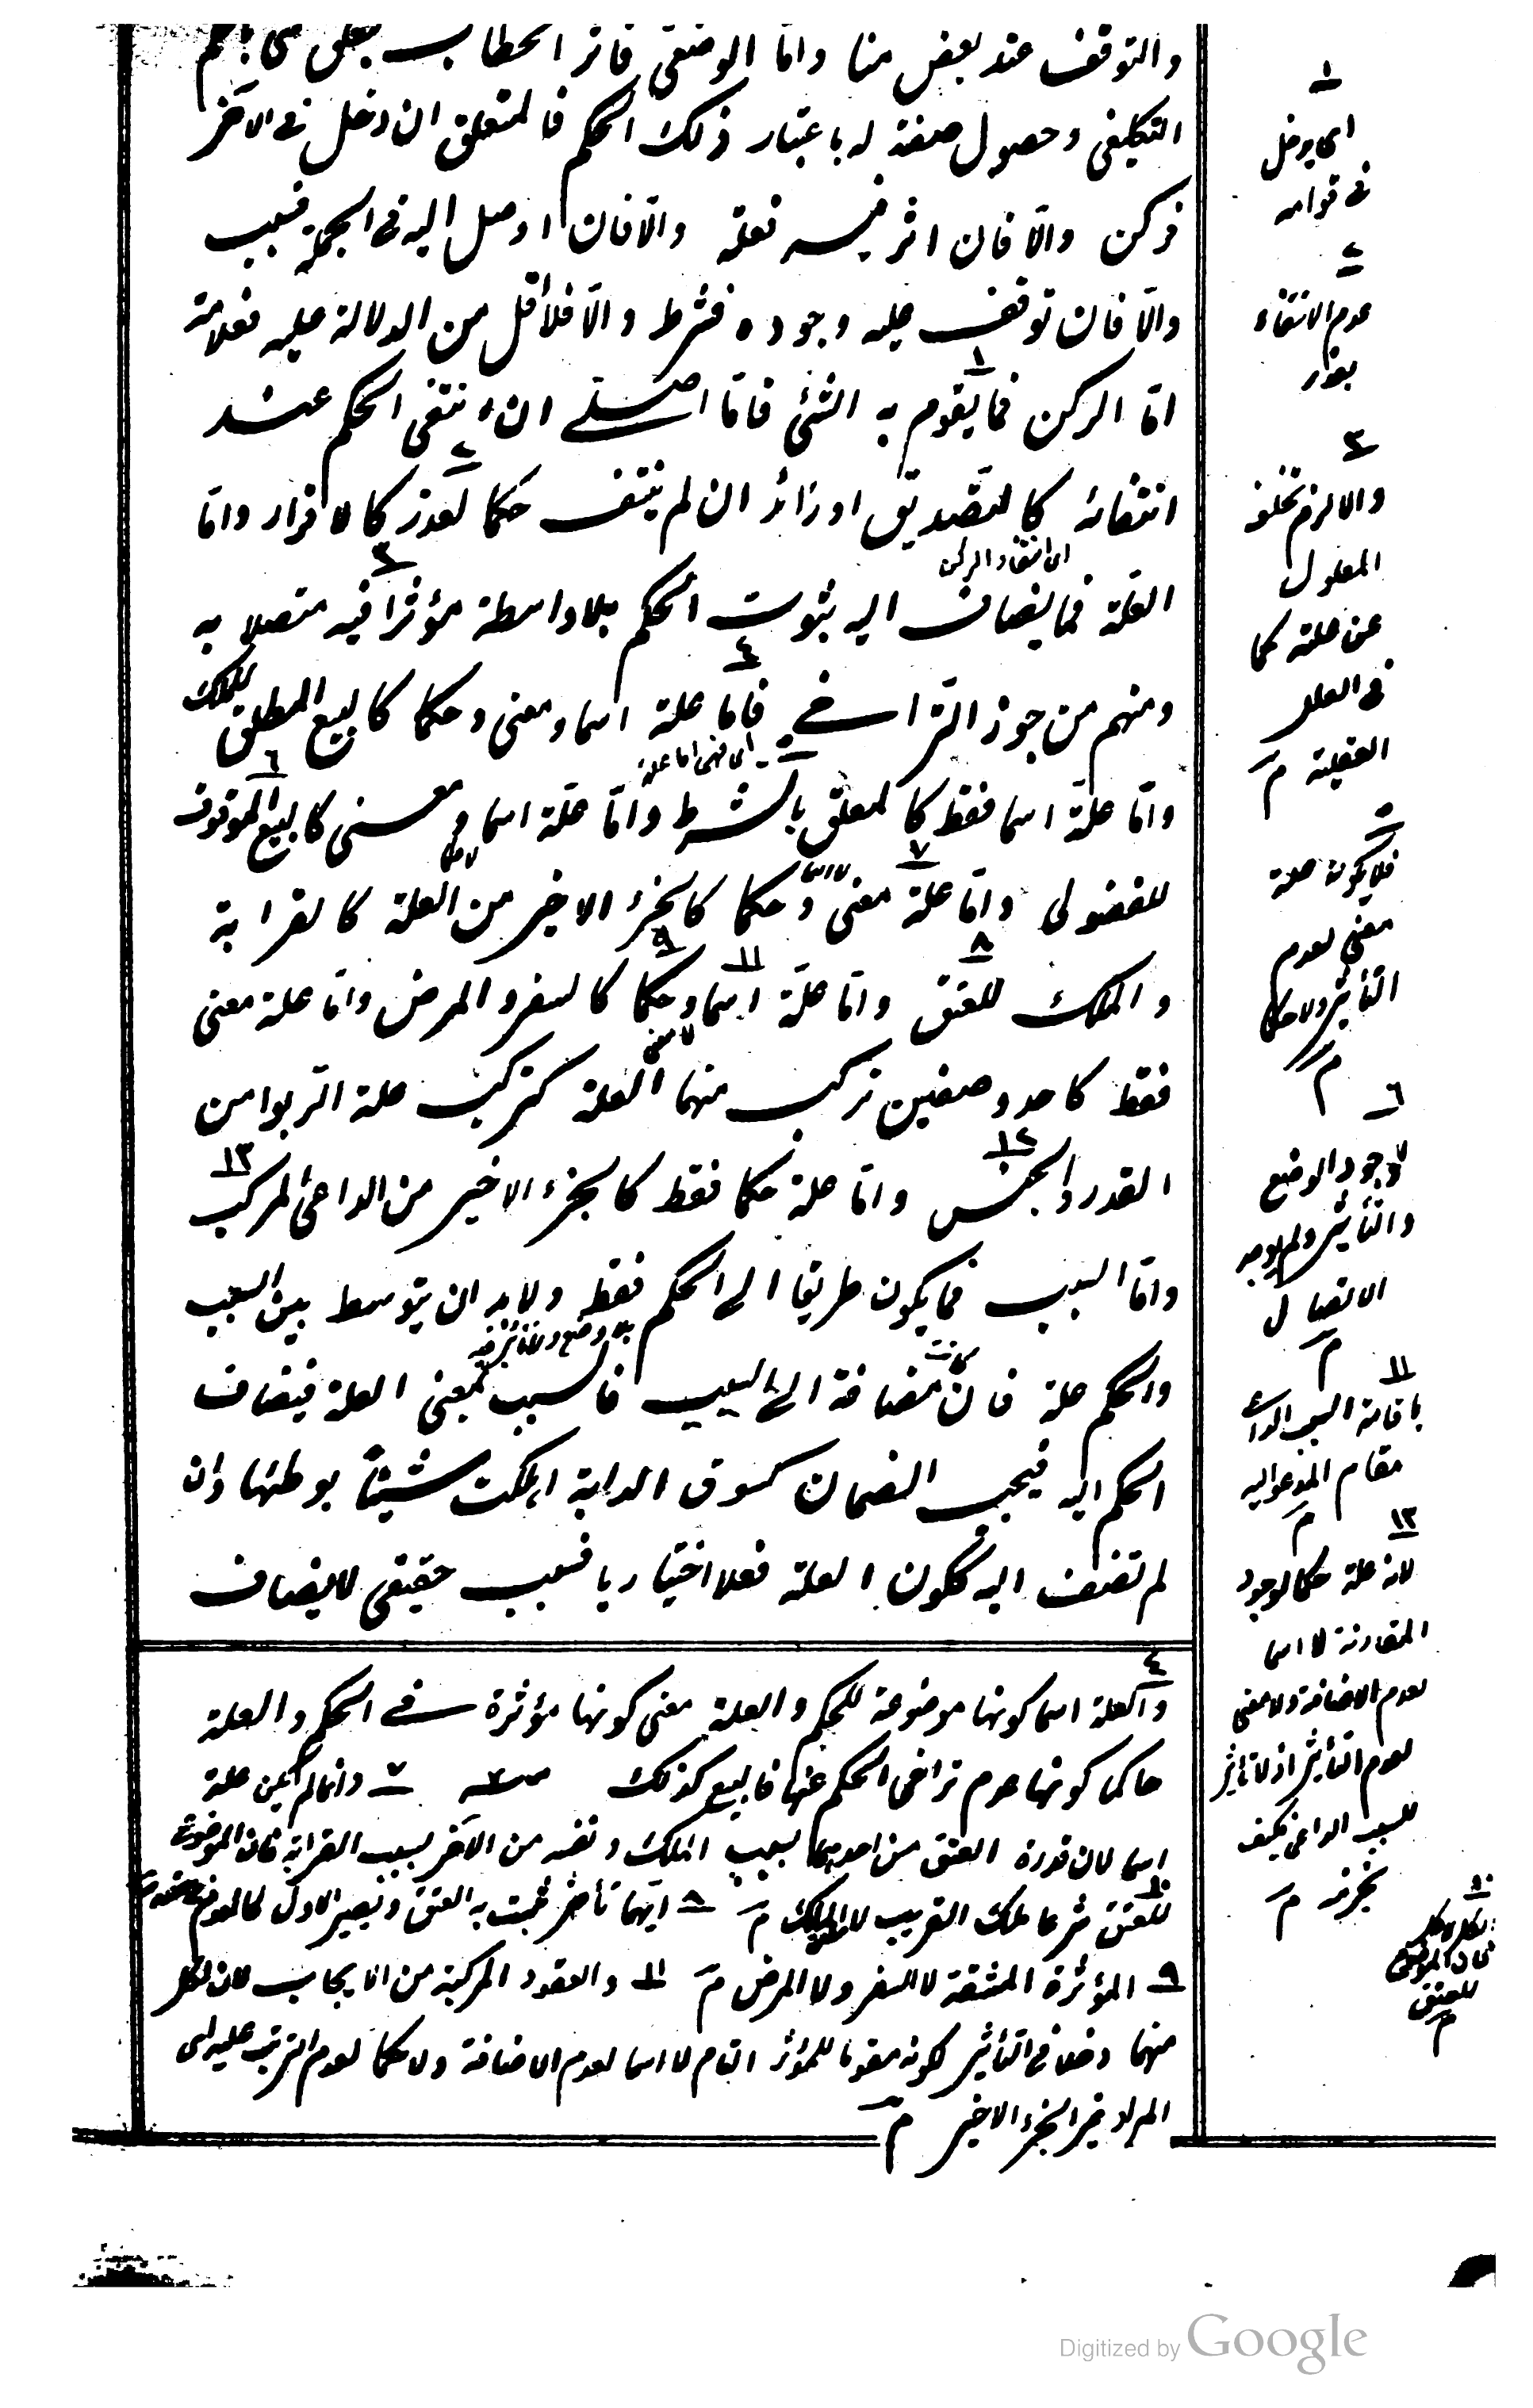 والتوقف عند بعض منا واما الوضعى فاثر الخطاب بتعلق شئ بالحكم
التكليفى وحصول صفة له باعتبار ذلك الحكم فالمتعلق ان دخل فى الآخر
فركن والا فان اثر فيه فعلة والا فان اوصل اليه فى الجملة فسبب
والا فان توقف عليه وجوده فشرط والا فلا اقل من الدلالة عليه فعلامة
اما الركن فما يقوم به الشئ فاما اصلى ان انتفى الحكم عند
انتفائه كالتصديق او زائد ان لم ينتف حكما لعذر كالاقرار واما
اى انتفاء الركن
العلة فما يضاف اليه ثبوت الحكم بلا واسطة مؤثرا فيه متصلا به
ومنهم من جوز التراخى فاما علة اسما ومعنى وحكما كالبيع المطلق للملك
اى فهى اما علة
واما علة اسما فقط كالمعلق بالشرط واما علة اسما ومعنى كالبيع الموقوف
لا حكما
للفضولى واما علة معنى وحكما كالجزء الاخير من العلة كالقرابة
لا اسما
والملك للعتق واما علة اسما وحكما كالسفر والمرض واما علة معنى
لا معنى
فقط كاحد وصفين تركب منهما العلة كتركب علة الربوا من
القدر والجنس واما علة حكما فقط كالجزء الاخير من الداعى المركب
واما السبب فما يكون طريقا الى الحكم فقط ولا بد ان يتوسط بين السبب
بلا وضع ولا تأثير فيه
والحكم علة فان كانت مضافة الى السبب فالسبب بمعنى العلة فيضاف
الحكم اليه فيجب الضمان كسوق الدابة اهلكت شيئا بوطئها وان
لم تضف اليه ككون العلة فعلا اختياريا فسبب حقيقى لا يضاف
٤
والعلة اسما كونها موضوعة للحكم والعلة معنى كونها مؤثرة فى الحكم والعلة
حكما كونها عدم تراخى الحكم عنها فالبيع كذلك ٧ وانما لم يكن علة
اسما لان قدرة العتق من احدهما بسبب الملك ونفسه من الآخر بسبب القرابة فان الموضوع
للعتق شرعا ملك القريب لا الملك م ٨ ايهما تأخر ثبت به العتق ويصير الاول كالمعدوم
٩ المؤثرة المشقة لا السفر ولا المرض م ١١ والعقود المركبة من الايجاب لان لكل
منهما دخلا فى التأثير لكونه مقوما للمؤثر التام لا اسما لعدم الاضافة ولا حكما لعدم الترتب عليه اى
المراد غير الجزء الاخير م
١
اى يدخل
فى قوامه
٢
عدم الانتفاء
بعذر
٣
والا لزم تخلف
المعلول
عن علته كما
فى العلل
العقلية م
٥
فلا يكون علة
معنى لعدم
التأثير ولا حكما
م
٦
لوجود الوضع
والتأثير ولم يوجد
الاتصال
م
١١
باقامة السبب الداعى
مقام المدعو اليه
م
١٣
لانه علة حكما لوجود
المقارنة لا اسما
لعدم الاضافة ولا معنى
لعدم التأثير اذ لا تأثير
للسبب الداعى فكيف
بجزئه م
١٠
فان الموضوع
للعتق
م
Digitized by Google